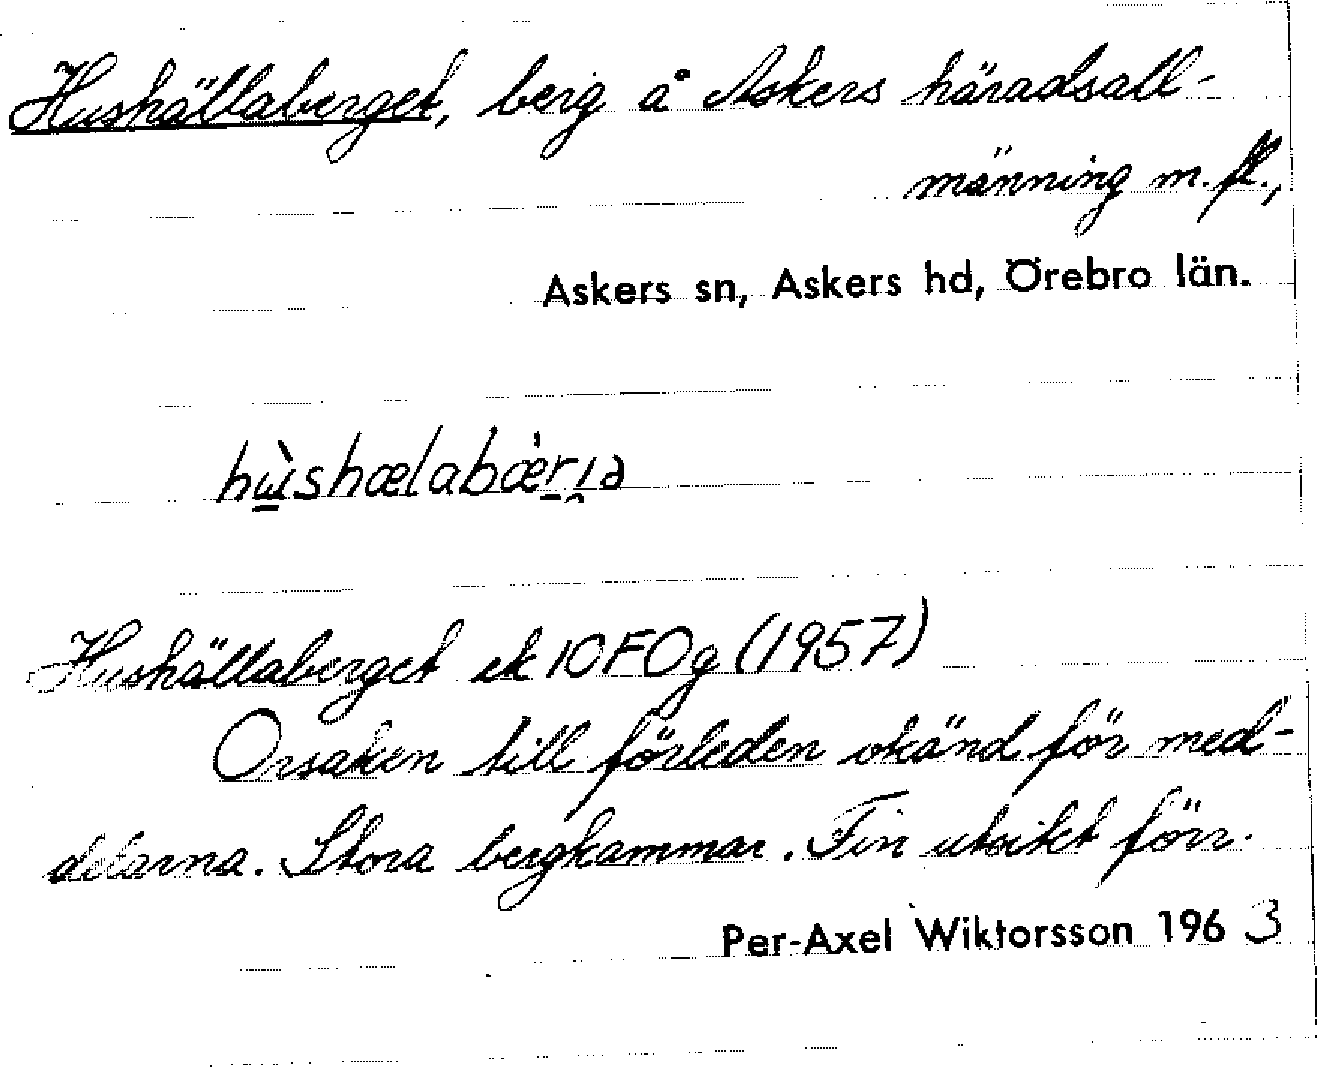 Hushällaberget, berg å Askers häradsall-
männing m. fl.,
Askers sn, Askers hd, Örebro län.
hu̠̇̀shælabæ̇r̠ı̯ə
Hushällaberget ek 10F0g (1957)
Orsaken till förleden okänd för med-
delarna. Stora bergkammar. Fin utsikt förr.
Per-Axel Wiktorsson 1963